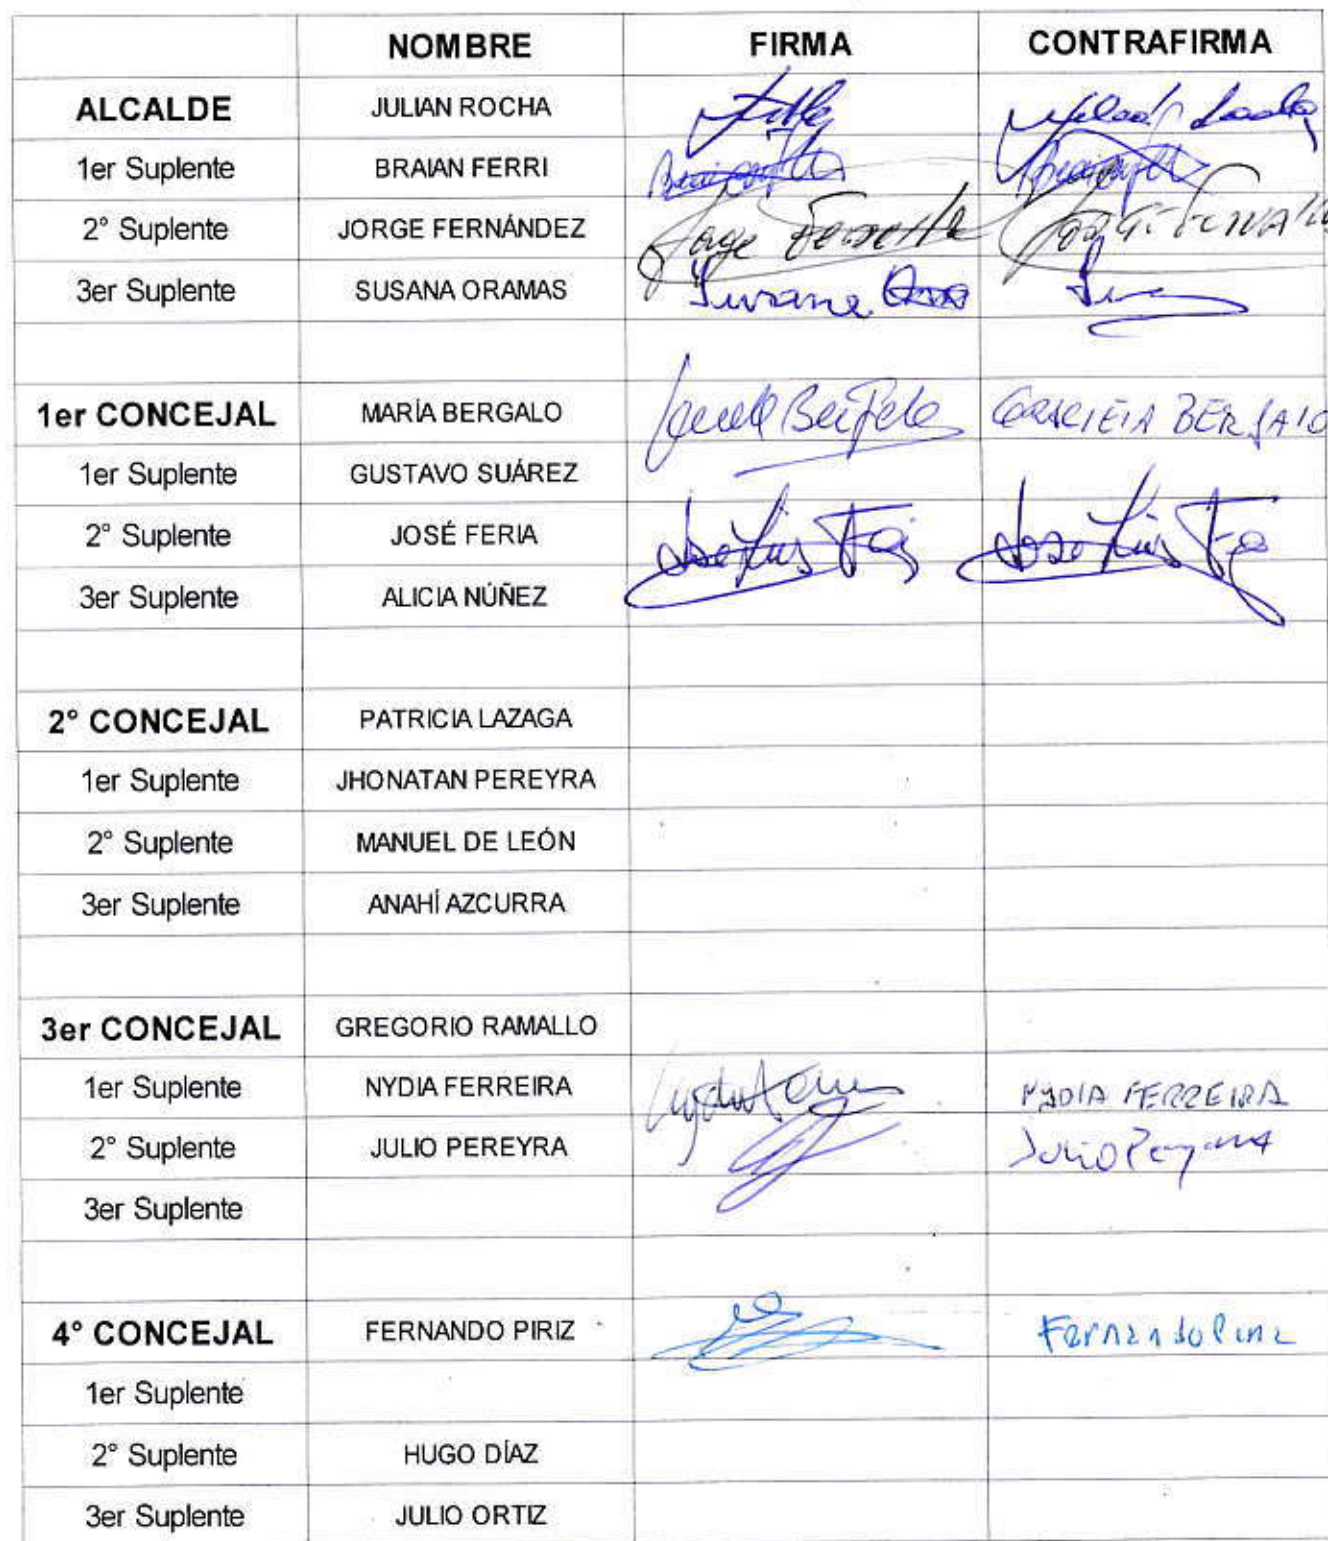 NOMBRE FIRMA CONTRAFIRMA
ALCALDE JULIAN ROCHA
1er Suplente BRAIAN FERRI
2° Suplente JORGE FERNÁNDEZ Jorge
3er Suplente SUSANA ORAMAS Susana
1er CONCEJAL MARÍA BERGALO GRACIELA BERGALO
1er Suplente GUSTAVO SUÁREZ
2° Suplente JOSÉ FERIA Jose Luis Jose Luis
3er Suplente ALICIA NÚÑEZ
2° CONCEJAL PATRICIA LAZAGA
1er Suplente JHONATAN PEREYRA
2° Suplente MANUEL DE LEÓN
3er Suplente ANAHÍ AZCURRA
3er CONCEJAL GREGORIO RAMALLO
1er Suplente NYDIA FERREIRA NYDIA FERREIRA
2° Suplente JULIO PEREYRA Julio
3er Suplente
4° CONCEJAL FERNANDO PIRIZ Fernando Piriz
1er Suplente
2° Suplente HUGO DÍAZ
3er Suplente JULIO ORTIZ